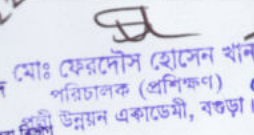 মোঃ ফেরদৌস হোসেন খান
পরিচালক (প্রশিক্ষণ)
পল্লী উন্নয়ন একাডেমী, বগুড়া।